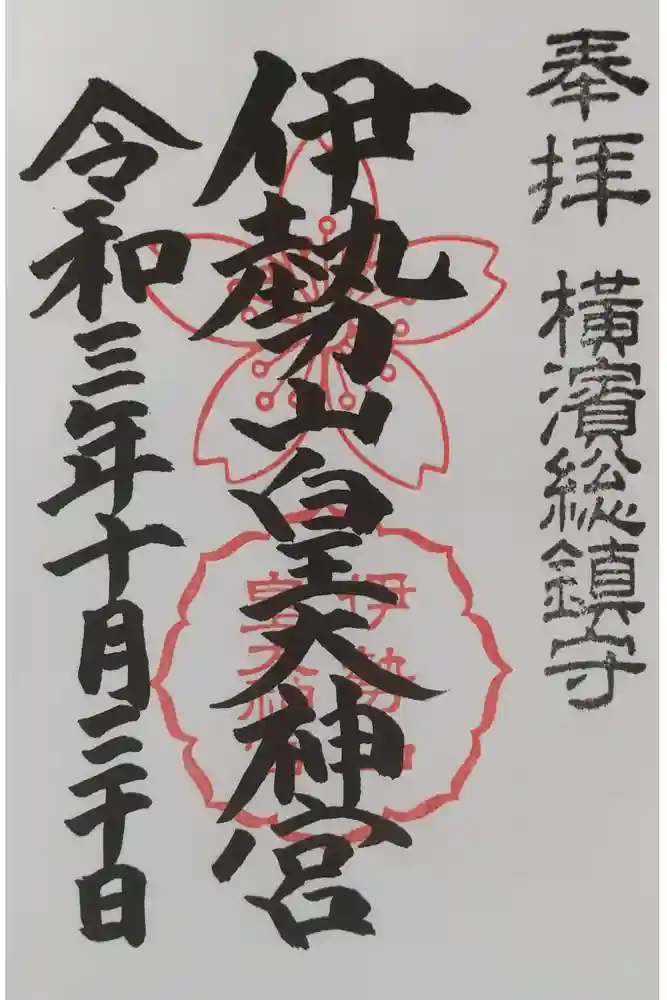 奉拝 横濱総鎮守
伊勢山皇大神宮
令和三年十月三十日
伊勢山
皇大神宮